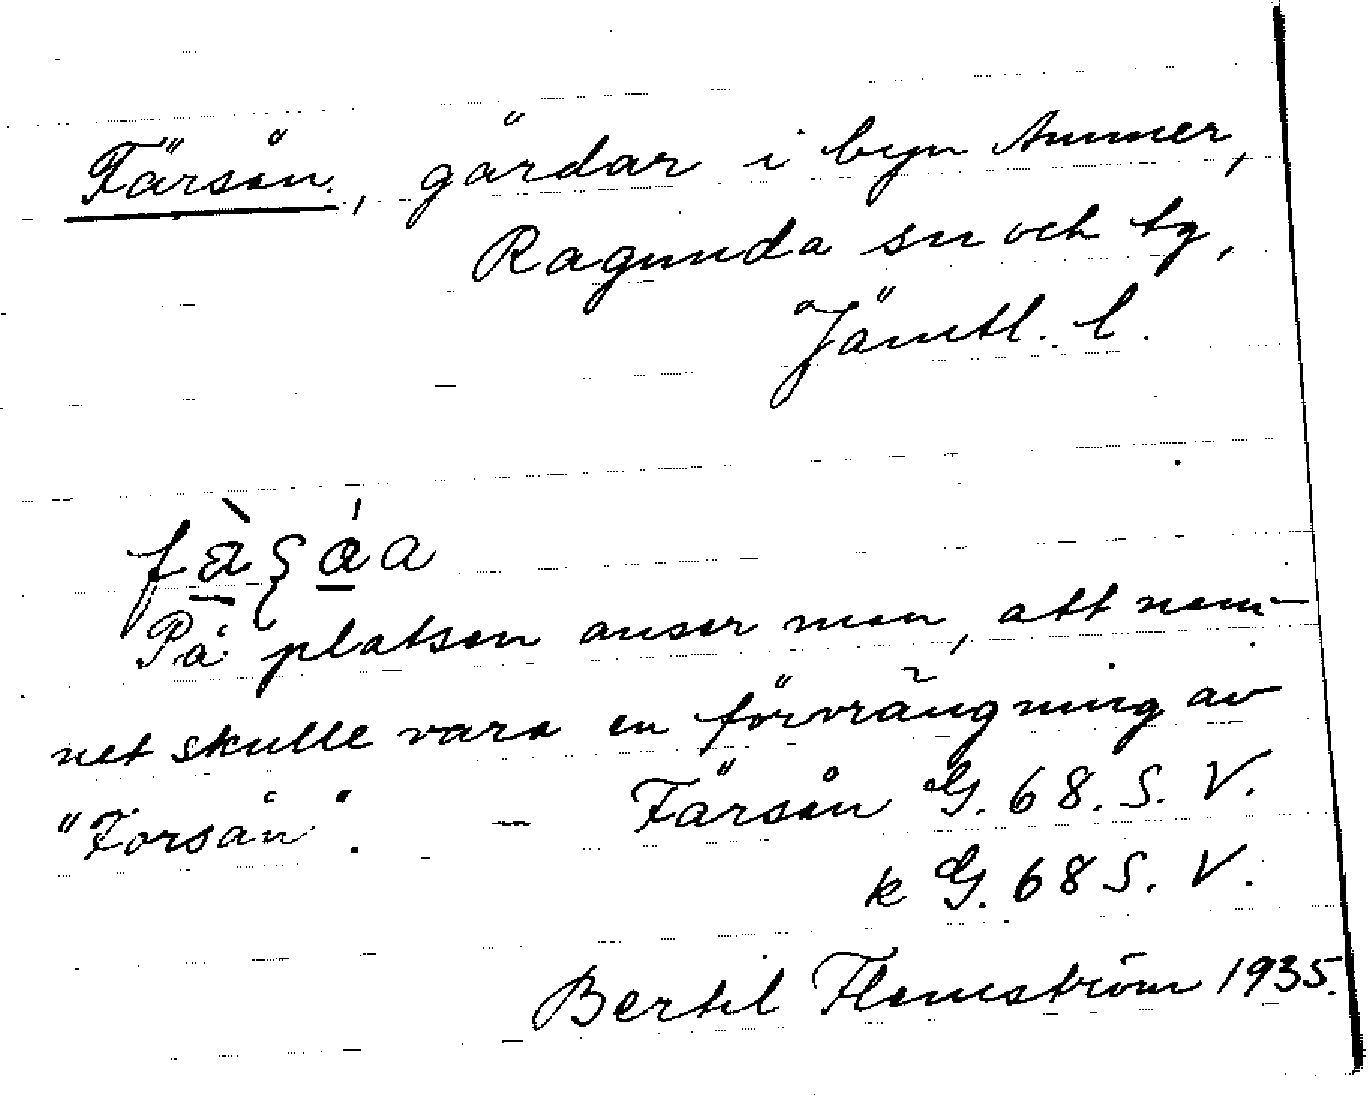 Färsån, gårdar i byn Ammer,
Ragunda sn och tg,
Jämtl. l.
På platsen anser man, att nam-
net skulle vara en förvrängning av
"Forsån". – Färsån G. 68. S. V.
k G. 68 S. V.
Bertil Flemström 1935.